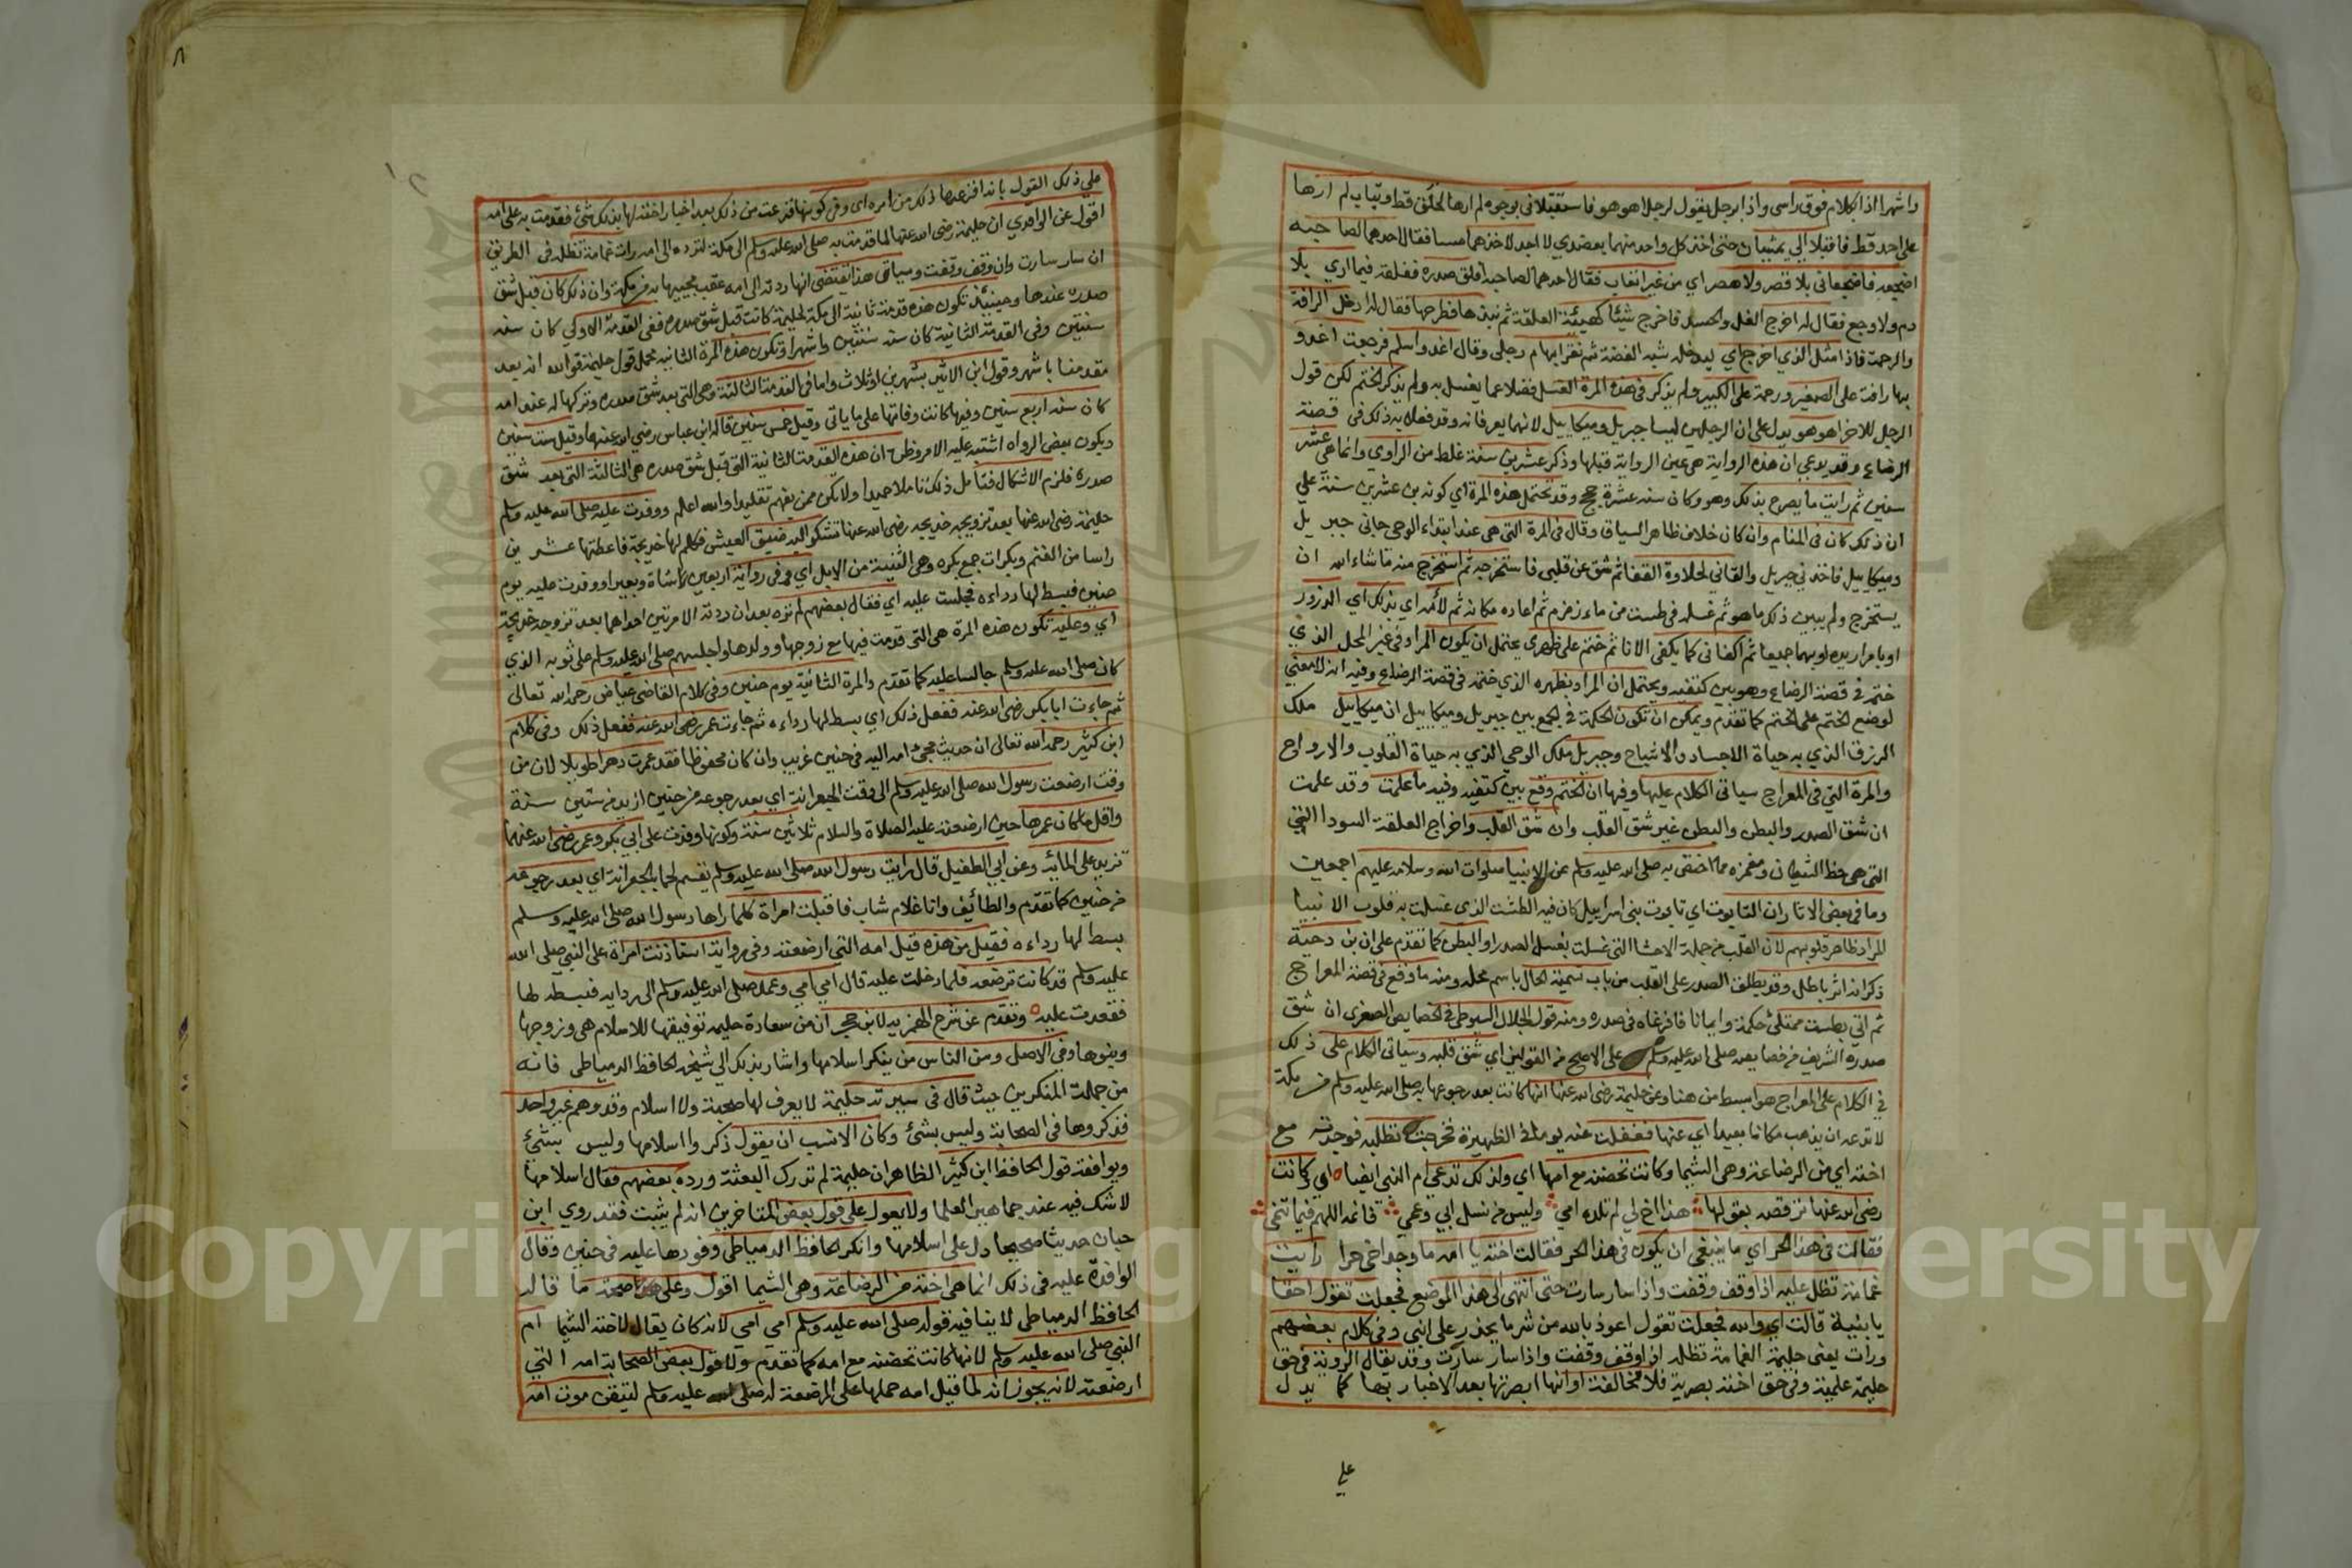 واشهرا اذا بكلام فوق راسي واذا برجل يقول لرجل اهو هو فاستقبلاني بوجوه لم ارها لخلق قط وثياب لم ارها
على احد قط فاقبلا الي يمشيان حتى اخذ كل واحد منهما بعضدي لا اجد لاخذهما مسا فقال احدهما لصاحبه
اضجعه فاضجعاني بلا قصر ولا هصر اي من غير اتعاب فقال احدهما لصاحبه افلق صدره ففلقه فيما ارى بلا
دم ولا وجع فقال له اخرج الغل والحسد فاخرج شيئا كهيئة العلقة ثم نبذها فطرحها فقال له ادخل الرافة
والرحمة فاذا مثل الذي اخرج اي ليدخله شبه الفضة ثم نقر ابهام رجلي وقال اغد واسلم فرجعت اغدو
بها رافة على الصغير ورحمة على الكبير ولم يذكر في هذه المرة الغسل فضلا عما يغسل به ولم يذكر الختم لكن قول
الرجل للاخر اهو هو يدل على ان الرجلين ليسا جبريل وميكاييل لانهما يعرفانه وقد فعلا به ذلك في قصة
الرضاع وقد يدعى ان هذه الرواية هي عين الرواية قبلها وذكر عشرين سنة غلط من الراوي وانما هي عشر
سنين ثم رايت ما يصرح بذلك وهو وكان سنه عشرة حجج وقد تحتمل هذه المرة اي كونه بن عشرين سنة على
ان ذلك كان في المنام وان كان خلاف ظاهر السياق وقال في المرة التي هي عند ابتداء الوحي جاني جبريل
وميكاييل فاخذني جبريل والقاني لحلاوة القفا ثم شق عن قلبي فاستخرجه ثم استخرج منه ما شاء الله ان
يستخرج ولم يبين ذلك ما هو ثم غسله في طست من ماء زمزم ثم اعاده مكانه ثم لأمه اي بذلك اي الذرور
او بامرار يده او بهما جميعا ثم اكفاني كما يكفى الانا ثم ختم على ظهري يحتمل ان يكون المراد في غير المحل الذي
ختم في قصة الرضاع وهو بين كتفيه ويحتمل ان المراد بظهره الذي ختمه في قصة الرضاع وفيه انه لا معنى
لوضع الختم على الختم كما تقدم ويمكن ان تكون الحكمة في الجمع بين جبريل وميكاييل ان ميكاييل ملك
الرزق الذي به حياة الاجساد والاشباح وجبريل ملك الوحي الذي به حياة القلوب والارواح
والمرة التي في المعراج سياتي الكلام عليها وفيها ان الختم وقع بين كتفيه وفيه ما علمت وقد علمت
ان شق الصدر والبطن والبطن غير شق القلب وان شق القلب واخراج العلقة السودا التي
التي هي حظ الشيطان ومغمزه مما اختص به صلى الله عليه وسلم عن الانبيا صلوات الله وسلامه عليهم اجمعين
وما في بعض الاثار ان التابوت اي تابوت بني اسراييل كان فيه الطشت الذي غسلت به قلوب الانبيا
المراد ظاهر قلوبهم لان القلب من جملة الاحشا التي غسلت بغسل الصدر او البطن كما تقدم على ان بن دحية
ذكر انه اثر باطل وقد يطلق الصدر على القلب من باب تسمية الحال باسم محله ومنه ما وقع في قصة المعراج
ثم اتى بطست ممتلئ حكمة وايمانا فافرغاه في صدره ومنه قول الجلال السيوطي في الخصايص الصغرى ان شق
صدره الشريف من خصايصه صلى الله عليه وسلم على الاصح من القولين اي شق قلبه وسياتي الكلام على ذلك
في الكلام على المعراج هو ابسط من هنا وعن حليمة رضي الله عنها انها كانت بعد رجوعها به صلى الله عليه وسلم من مكة
لا تدعه ان يذهب مكانا بعيدا اي عنها فغفلت عنه يوما في الظهيرة فخرجت تطلبه فوجدته مع
اخته اي من الرضاعة وهي الشيما وكانت تحضنه مع امها اي ولذلك تدعى ام النبي ايضا اي وكانت
رضي الله عنها ترقصه بقولها هذا اخ لي لم تلده امي وليس من نسل ابي وعمي فانمه اللهم فيما تنمي
فقالت في هذا الحر اي ما ينبغي ان يكون في هذا الحر فقالت اخته يا امه ما وجد اخي حرا رايت
غمامة تظل عليه اذا وقف وقفت واذا سار سارت حتى انتهى الى هذا الموضع فجعلت تقول احقا
يا بنية قالت اي والله فجعلت تقول اعوذ بالله من شر ما يحذر على ابني وفي كلام بعضهم
ورات يعني حليمة الغمامة تظله اذا وقف وقفت واذا سار سارت وقد يقال الروية في حق
حليمة علمية وفي حق اخته بصرية فلا مخالفة او انها ابصرتها بعد الاخبار بها كما يدل
علي
علي ذلك القول بانه افزعها ذلك من امره اي وفي كونها فزعت من ذلك بعد اخبار اخته لها بذلك شئ فقدمت به على امه
اقول عن الواقدي ان حليمة رضي الله عنها لما قدمت به صلى الله عليه وسلم الى مكة لترده الى امه رات غمامة تظله في الطريق
ان سار سارت وان وقف وقفت وسياق هذا يقتضي انها ردته الى امه عقب مجييها به من مكة وان ذلك كان قبل شق
صدره عندها وحينئذ تكون هذه قدمة ثانية الى مكة لحليمة كانت قبل شق صدره ففي القدمة الاولى كان سنه
سنتين وفي القدمة الثانية كان سنه سنتين واشهرا وتكون هذه المرة الثانية محمل قول حليمة فوالله انه بعد
مقدمنا باشهر وقول ابن الاثير بشهرين او ثلاث واما في القدمة الثالثة وهي التي بعد شق صدره وتركها له عند امه
كان سنه اربع سنين وفيها كانت وفاتها على ما ياتي وقيل خمس سنين قاله ابن عباس رضي الله عنهما وقيل ست سنين
ويكون بعض الرواه اشتبه عليه الامر وظن ان هذه القدمة الثانية التي قبل شق صدره هي الثالثة التي بعد شق
صدره فلزم الاشكال فتامل ذلك تاملا حميدا ولا تكن ممن يفهم تقليدا والله اعلم ووفدت عليه صلى الله عليه وسلم
حليمة رضي الله عنها بعد تزويجه خديجه رضي الله عنها تشكو اليه ضيق العيش فكلم لها خديجة فاعطتها عشرين
راسا من الغنم وبكرات جمع بكره وهي الثنية من الابل اي وفي رواية اربعين شاة وبعيرا ووفدت عليه يوم
حنين فبسط لها رداءه فجلست عليه اي فقال بعضهم لم تره بعد ان ردته الا مرتين احداهما بعد تزوجه خديجة
اي وعليه تكون هذه المرة هي التي قدمت فيها مع زوجها وولدها واجلسهم صلى الله عليه وسلم على ثوبه الذي
كان صلى الله عليه وسلم جالسا عليه كما تقدم والمرة الثانية يوم حنين وفي كلام القاضي عياض رحمه الله تعالى
ثم جاءت ابا بكر رضي الله عنه ففعل ذلك اي بسط لها رداءه ثم جاءت عمر رضي الله عنه ففعل ذلك وفي كلام
ابن كثير رحمه الله تعالى ان حديث مجئ امه اليه في حنين غريب وان كان محفوظا فقد عمرت دهرا طويلا لان من
وقت ارضعت رسول الله صلى الله عليه وسلم الى وقت الجعرانة اي بعد رجوعه من حنين ازيد من ستين سنة
واقل ما كان عمرها حين ارضعته عليه الصلاة والسلام ثلاثين سنة وكونها وفدت على ابي بكر وعمر رضي الله عنهما
تزيد على المائة وعن ابي الطفيل قال رايت رسول الله صلى الله عليه وسلم يقسم لحما بالجعرانة اي بعد رجوعه
من حنين كما تقدم والطائف وانا غلام شاب فاقبلت امراة فلما راها رسول الله صلى الله عليه وسلم
بسط لها رداءه فقيل من هذه قيل امه التي ارضعته وفي رواية استاذنت امراة على النبي صلى الله
عليه وسلم قد كانت ترضعه فلما دخلت عليه قال امي امي وعمد صلى الله عليه وسلم الى ردايه فبسطه لها
فقعدت عليه وتقدم عن شرح الهمزية لابن حجر ان من سعادة حليمة توفيقها للاسلام هي وزوجها
وبنوها وفي الاصل ومن الناس من ينكر اسلامها واشار بذلك الى شيخه الحافظ الدمياطي فانه
من جملة المنكرين حيث قال في سيرته حليمة لا يعرف لها صحبة ولا اسلام وقد وهم غير واحد
فذكروها في الصحابة وليس بشئ وكان الانسب ان يقول ذكروا اسلامها وليس بشئ
ويوافقه قول الحافظ ابن كثير الظاهر ان حليمة لم تدرك البعثة ورده بعضهم فقال اسلامها
لا شك فيه عند جماهير العلما ولا يعول على قول بعض المتاخرين انه لم يثبت فقد روي ابن
حبان حديثا صحيحا دل على اسلامها وانكر الحافظ الدمياطي وفودها عليه في حنين وقال
الوافدة عليه في ذلك انما هي اخته من الرضاعة وهي الشيما اقول وعلى صحة ما قاله
الحافظ الدمياطي لا ينافيه قوله صلى الله عليه وسلم امي امي لانه كان يقال لاخته الشيما ام
النبي صلى الله عليه وسلم لانها كانت تحضنه مع امه كما تقدم ولا قول بعض الصحابة امه التي
ارضعته لانه يجوز انه لما قيل امه حملها على المرضعة له صلى الله عليه وسلم لتيقن موت امه